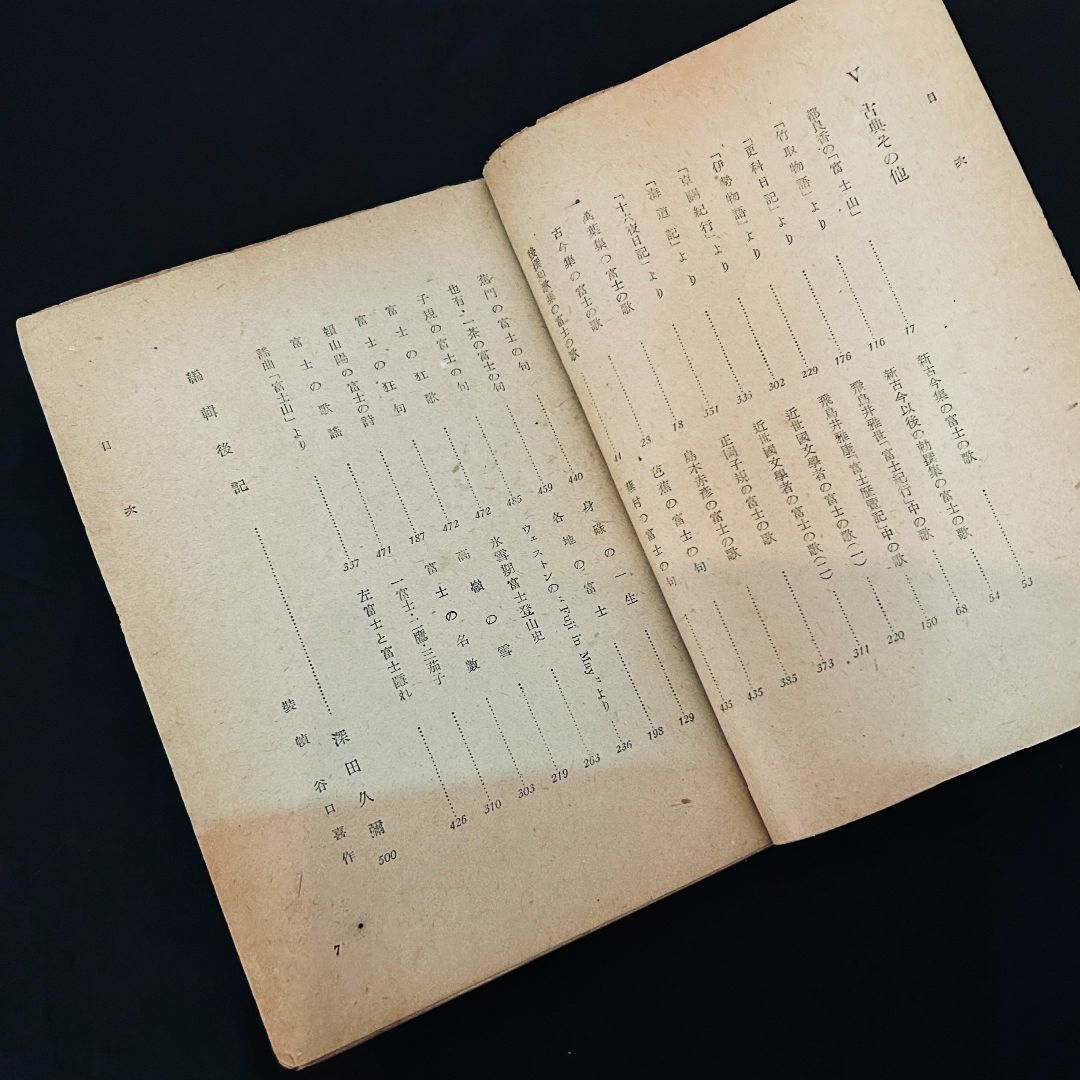 目次
V 古典その他
都良香の「富士山」 17
「竹取物語」より 116
「更科日記」より 176
「伊勢物語」より 229
「東關紀行」より 302
「海道記」より 335
「十六夜日記」より 351
萬葉集の富士の歌 18
古今集の富士の歌 28
後撰和歌集の富士の歌 44
新古今集の富士の歌 53
新古今以後の勅撰集の富士の歌 54
飛鳥井雅世「富士紀行」中の歌 68
飛鳥井雅康「富士歷覽記」中の歌 150
近世國文學者の富士の歌(一) 220
近世國文學者の富士の歌(二) 311
正岡子規の富士の歌 373
島木赤彦の富士の歌 385
芭蕉の富士の句 435
蕪村の富士の句 435
蕉門の富士の句 440
也有・一茶の富士の句 459
子規の富士の句 485
富士の狂歌 472
富士の狂句 472
賴山陽の富士の詩 187
富士の歌謠 471
謠曲「富士山」より 337
身祿の一生 129
各地の富士 198
ウェストンの“Fuji in May”より 236
氷雪期富士登山史 263
高嶺の雪 219
富士の名數 303
一富士・二鷹・三茄子 310
左富士と富士隱れ 426
編輯後記 深田久彌 500
裝幀 谷口喜作
目次
7